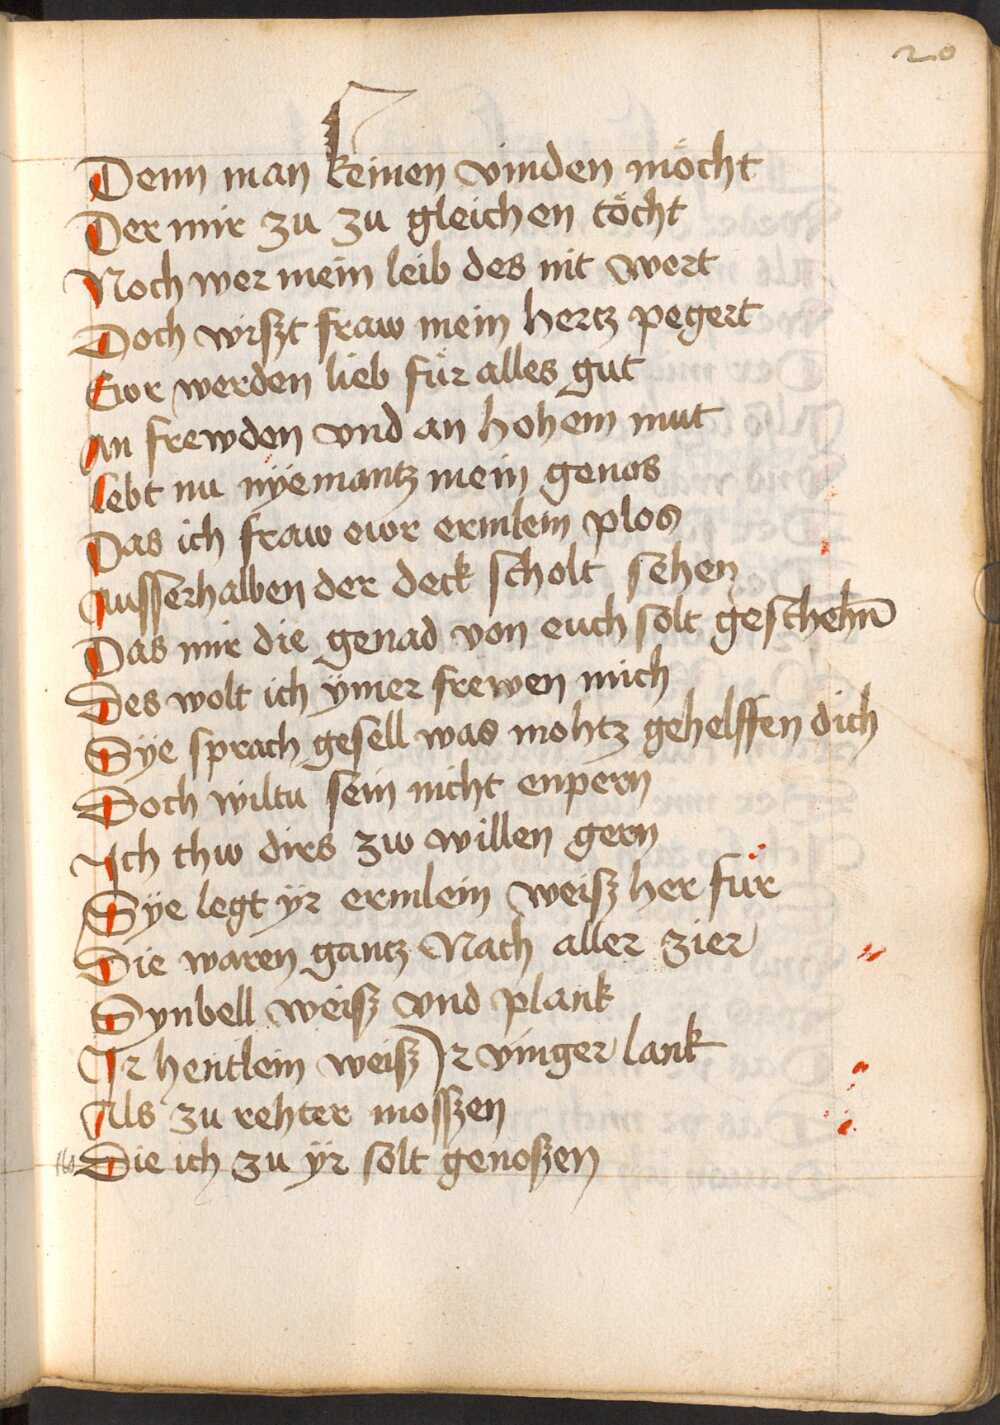 20
Denn man keinen vinden möcht
Der mir zu zu gleichen töcht
Noch wer mein leib des nit wert
Doch wiszt fraw mein hertz pegert
Ewr werden lieb für alles gut
An frewden vnd an hohem mut
lebt nu nÿemantz mein genos
Das ich fraw ewr ermlein plos
Ausserhalben der deck scholt sehen
Das mir die genad von euch solt geschehn̄
Des wolt ich ÿmer frewen mich
Sÿe sprach gesell was mohtz gehelffen dich
Doch wiltu sein nicht enpern
Ich thw dirs zw willen gern
Sÿe legt ÿr ermlein weisz her für
Die waren gantz Nach aller zier
Synbell weisz vnd plank
Ir hentlein weisz Ir vinger lank
Als zu rehter mosszen
Die ich zu ÿr solt genoszen